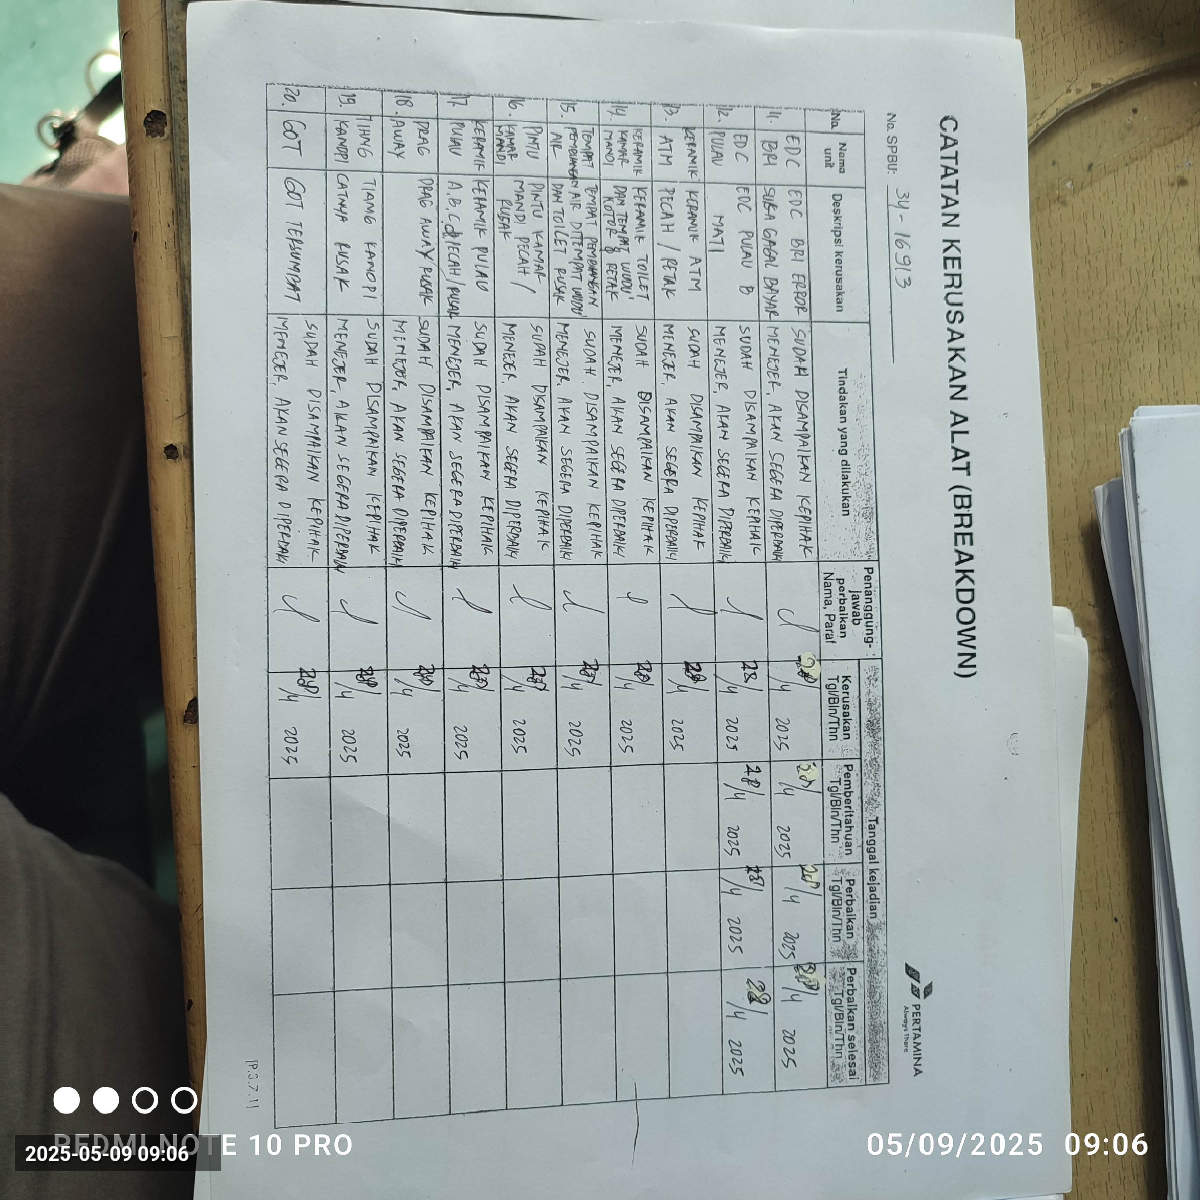 CATATAN KERUSAKAN ALAT (BREAKDOWN)
PERTAMINA
Always There
No. SPBU: 34-16913
No. Nama unit Deskripsi kerusakan Tindakan yang dilakukan Penanggung-jawab perbaikan Nama, Paraf Tanggal kejadian
Kerusakan Tgl/Bln/Thn Pemberitahuan Tgl/Bln/Thn Perbaikan Tgl/Bln/Thn Perbaikan selesai Tgl/Bln/Thn
11. EDC BRI EDC BRI ERROR SUKA GAGAL BAYAR SUDAH DISAMPAIKAN KEPIHAK MENEJER, AKAN SEGERA DIPERBAIKI 28/4 2025 28/4 2025 28/4 2025 28/4 2025
12. EDC PULAU B EDC PULAU B MATI SUDAH DISAMPAIKAN KEPIHAK MENEJER, AKAN SEGERA DIPERBAIKI 28/4 2025 28/4 2025 28/4 2025 28/4 2025
13. KERAMIK ATM KERAMIK ATM PECAH / RETAK SUDAH DISAMPAIKAN KEPIHAK MENEJER. AKAN SEGERA DIPERBAIKI 28/4 2025
14. KERAMIK KAMAR MANDI KERAMIK TOILET DAN TEMPAT WUDU' KOTOR & RETAK SUDAH DISAMPAIKAN KEPIHAK MENEJER, AKAN SEGERA DIPERBAIKI 28/4 2025
15. TEMPAT PEMBUANGAN AIR TEMPAT PEMBUANGAN AIR DITEMPAT WUDU' DAN TOILET RUSAK SUDAH DISAMPAIKAN KEPIHAK MENEJER, AKAN SEGERA DIPERBAIKI 28/4 2025
16. PINTU KAMAR MANDI PINTU KAMAR MANDI PECAH / RUSAK SUDAH DISAMPAIKAN KEPIHAK MENEJER. AKAN SEGERA DIPERBAIKI 28/4 2025
17. KERAMIK PULAU KERAMIK PULAU A, B, C, d PECAH / RUSAK SUDAH DISAMPAIKAN KEPIHAK MENEJER, AKAN SEGERA DIPERBAIKI 28/4 2025
18. DRAG AWAY DRAG AWAY RUSAK SUDAH DISAMPAIKAN KEPIHAK MENEJER, AKAN SEGERA DIPERBAIKI 28/4 2025
19. TIHNG KANOPI TIAMG KANOPI CATNYA RUSAK SUDAH DISAMPAIKAN KEPIHAK MENEJER, AKAN SEGERA DIPERBAIKI 28/4 2025
20. GOT GOT TERSUMBAT SUDAH DISAMPAIKAN KEPIHAK MENEJER, AKAN SEGERA DIPERBAIKI 28/4 2025
[P.3.7.1]
REDMI NOTE 10 PRO
2025-05-09 09:06
05/09/2025 09:06